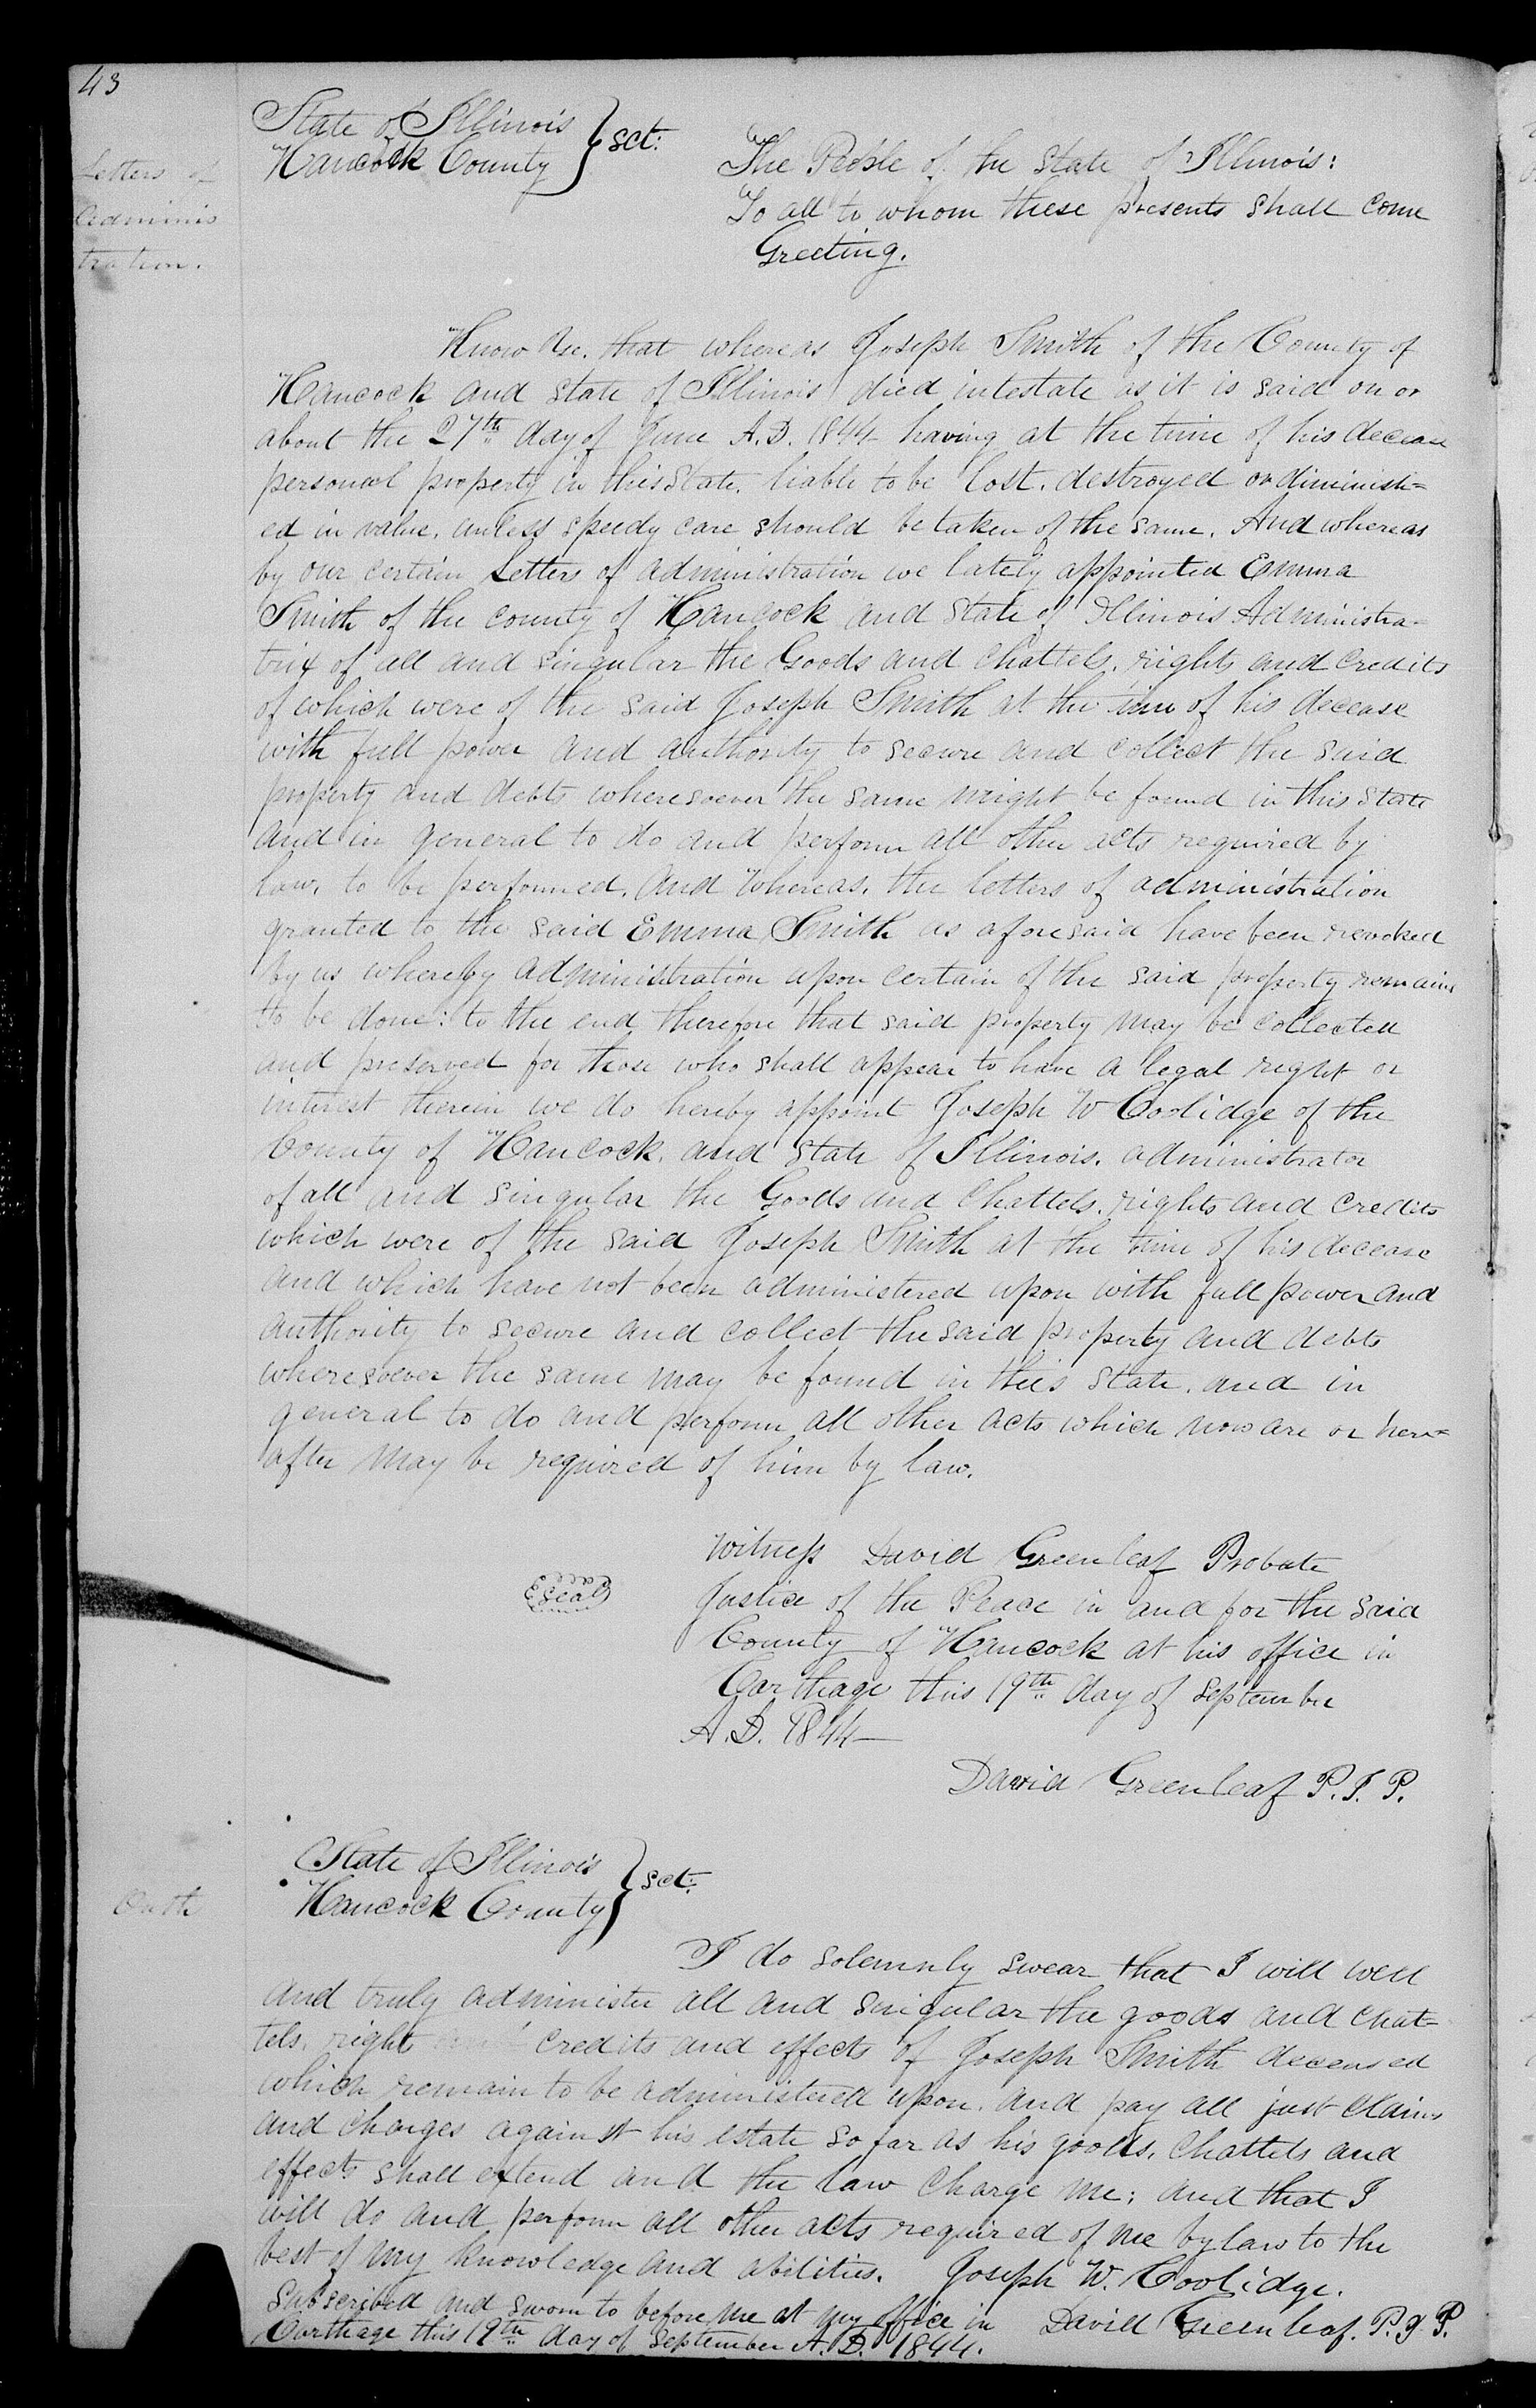 43
State of Illinois
Hancock County } sct:
Letters of
Adminis
tration.
The People of the State of Illinois:
To all to whom these presents shall come
Greeting.
Know Ye, that whereas Joseph Smith of the County of
Hancock and State of Illinois died intestate as it is said on or
about the 27th day of June A.D. 1844 having at the time of his decease
personal property in this State, liable to be lost, destroyed or diminish=
ed in value, unless speedy care should be taken of the same. And whereas
by our certain Letters of administration we lately appointed Emma
Smith of the county of Hancock and State of Illinois Administra-
trix of all and singular the Goods and Chattels, rights and credits
of which were of the said Joseph Smith at the time of his decease
with full power and authority to secure and collect the said
property and debts wheresoever the same might be found in this State
and in general to do and perform all other acts required by
law, to be performed. And whereas, the letters of administration
granted to the said Emma Smith as aforesaid have been revoked
by us whereby administration upon certain of the said property remains
to be done: to the end therefore that said property may be collected
and preserved for those who shall appear to have a legal right or
interest therein we do hereby appoint Joseph W Coolidge of the
County of Hancock, and State of Illinois, administrator
of all and singular the Goods and Chattels, rights and credits
which were of the said Joseph Smith at the time of his decease
and which have not been administered upon with full power and
authority to secure and collect the said property and debts
wheresoever the same may be found in this State, and in
general to do and perform all other acts which now are or here=
after may be required of him by law.
Witness David Greenleaf Probate
Seal
Justice of the Peace in and for the said
County of Hancock at his office in
Carthage this 19th day of September
A.D. 1844
David Greenleaf P.J.P.
State of Illinois
Hancock County } sct:
Oath
I do solemnly swear that I will well
and truly administer all and singular the goods and chat=
tels, right and credits and effects of Joseph Smith deceased
which remain to be administered upon, and pay all just claims
and charges against his estate so far as his goods, chattels and
effects shall extend and the law charge me; and that I
will do and perform all other acts required of me by law to the
best of my knowledge and abilities. Joseph W. Coolidge.
Subscribed and sworn to before me at my office in David Greenleaf. P.J.P.
Carthage this 19th day of September A.D. 1844.